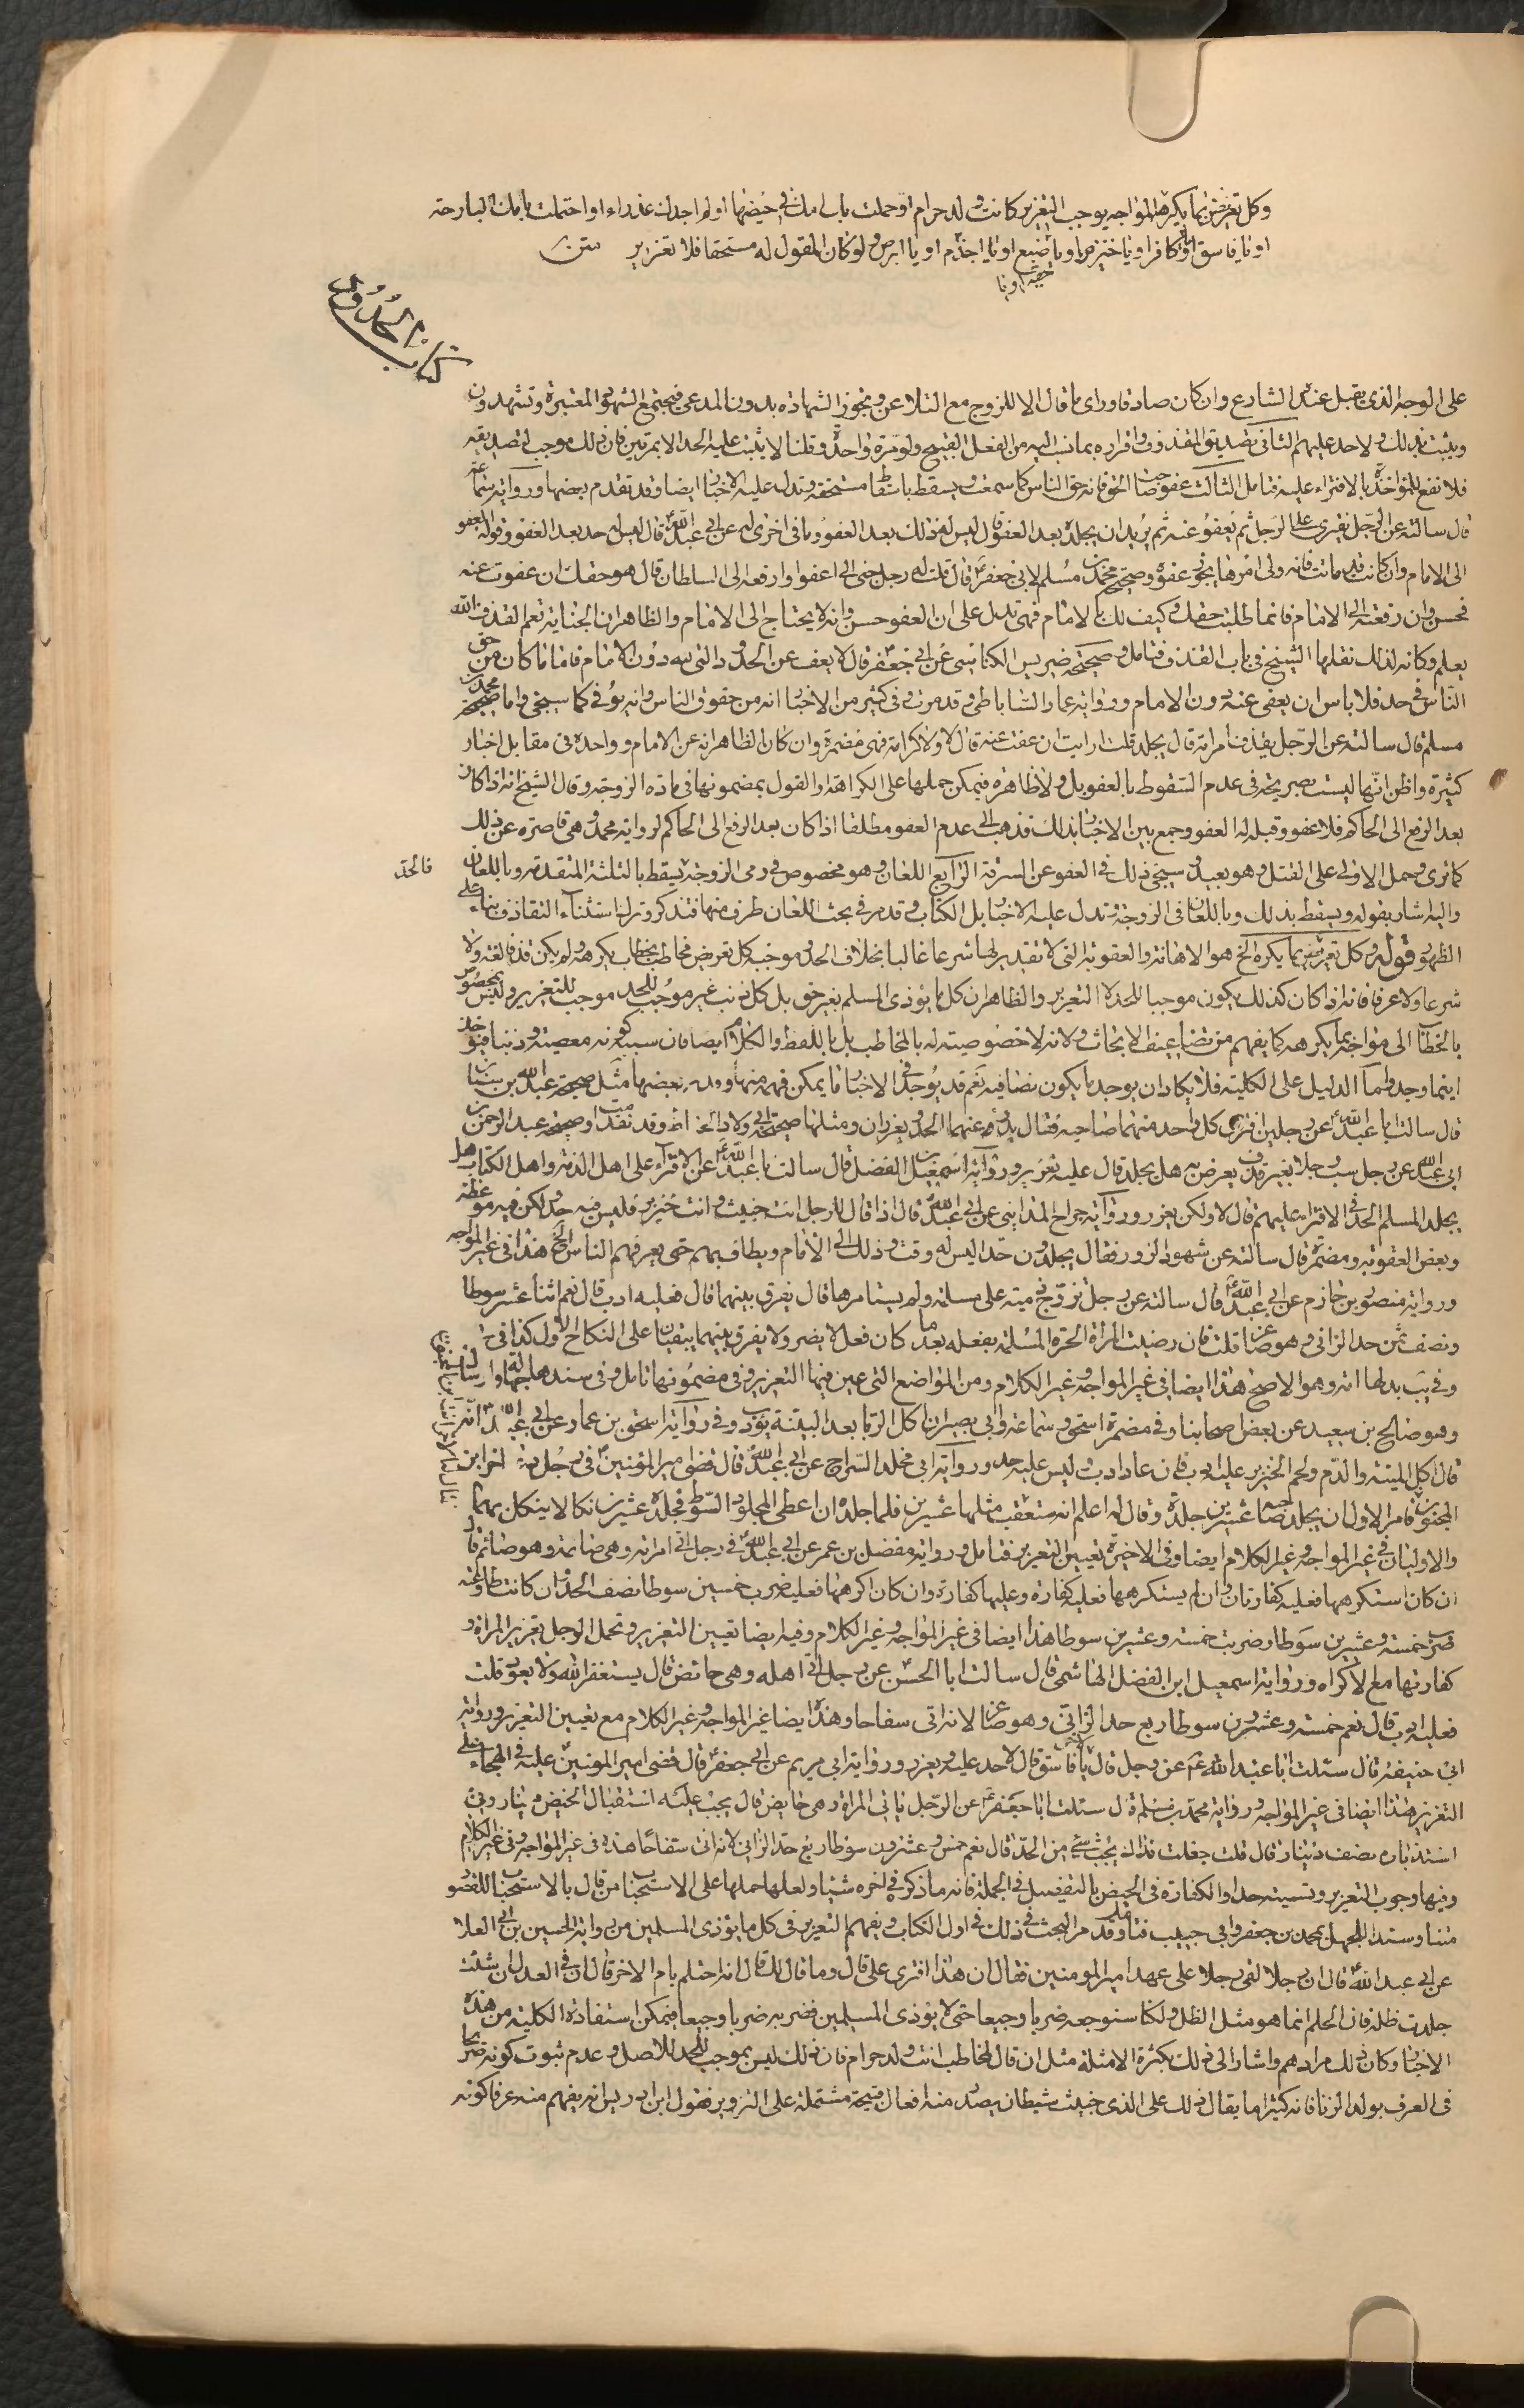 وكل تعريض بما يكرهه المواجه يوجب التعزير كانت ولد حرام او حملت بك امك في حيضها او لم اجدك عذراء او احتلمت بامك البارحة
او يا فاسق او يا كافر او يا خنزير او يا وضيع او يا اجذم او يا ابرص ولو كان المقول له مستحقا فلا تعزير متن
حقير او يا
كتاب الحدود
على الوجه الذي يقبل عند الشارع وان كان صادقا وراى ما قال الا للزوج مع التلاعن ويجوز الشهادة بدون المدعى فيجتمع الشهود المعتبرة وتشهدون
ويثبت بذلك ولا حد عليهم الثاني تصديق المقذوف واقراره بما نسب اليه من الفعل القبيح ولو مرة واحدة وقلنا لا يثبت عليه الحد الا بمرتين فان ذلك موجب لتصديقه
فلا نفع للمؤاخذة بالافتراء عليه فتامل الثالث عفو صاحب الحق فانه حق الناس كما سمعت ويسقط باسقاط مستحقه وتدل عليه الاخبار ايضا وقد تقدم بعضها ورواية سماعة
قال سالته عن الرجل يفترى على الرجل ثم يعفو عنه ثم يريد ان يجلده بعد العفو قال ليس له ذلك بعد العفو وما في اخرى له عن ابي عبد الله قال ليس له حد بعد العفو وقوله العفو
الى الامام وان كانت قد ماتت فانه ولى امرها يجوز عفوه وصحيحة محمد بن مسلم لابى جعفر قال قلت له رجل جنى الى اعفوا وارفعه الى السلطان قال هو حقك ان عفوت عنه
فحسن وان رفعته الى الامام فانما طلبت حقك وكيف لك بالامام فهى تدل على ان العفو حسن وانه لا يحتاج الى الامام والظاهر ان الجناية تعم القذف والله
يعلم وكانه لذلك نقلها الشيخ في باب القذف فتامل وصحيحة ضريس الكناسى عن ابي جعفر قال لا يعف عن الحدود التى لله دون الامام فاما ما كان من حق
الناس في حد فلا باس ان يعفى عنه دون الامام ورواية عمار الساباطى وقد مرت وفي كثير من الاخبار انه من حقوق الناس وانه يؤ في كما سيجئ واما صحيحة محمد بن
مسلم قال سالته عن الرجل يقذف امراته قال يجلد قلت ارايت ان عفت عنه قال لا ولا كرامة فهى مضمرة وان كان الظاهر انه عن الامام وواحدة في مقابل اخبار
كثيرة واظن انها ليست بصريحة في عدم السقوط بالعفو بل ولا ظاهرة فيمكن حملها على الكراهة او القول بمضمونها في مادة الزوجة وقال الشيخ انه اذا كان
بعد الرفع الى الحاكم فلا عفو وقبله له العفو وجمع بين الاخبار بذلك فذهب الى عدم العفو مطلقا اذا كان بعد الرفع الى الحاكم لرواية محمد وهى قاصرة عن ذلك
كما ترى وحمل الاولى على القتل وهو بعيد وسيجئ ذلك في العفو عن السرقة الرابع اللعان وهو مخصوص في رمى الزوجة يسقط بالثلثة المتقدمة وباللعان
فالحد
واليه اشار بقوله ويسقط بذلك وباللعان في الزوجة وتدل عليه الاخبار بل الكتاب وقد مر في بحث اللعان طرف منها فتذكر وترك استثناء التقاذف بناء على
الظهور قوله وكل تعريض بما يكره الخ هو الاهانة والعقوبة التى لا تقدير لها شرعا غالبا بخلاف الحد وموجبه كل تعريض مخاطب بخطاب يكرهه ولم يكن قذفا لغة ولا
شرعا ولا عرفا فانه اذا كان كذلك يكون موجبا للحد لا التعزير والظاهر ان كل ما يؤذى المسلم بغير حق بل كل ذنب غير موجب للحد موجب للتعزير وليس بمخصوص
بالخطاب الى مواجه بما يكرهه كما يفهم من تضاعيف الابحاث ولانه لا خصوصية له بالمخاطب بل باللفظ والكلام ايضا فان سببه كونه معصية وذنبا فيؤخذ
اينما وجد واما الدليل على الكلية فلا يكاد ان يوجد ما يكون نصا فيه نعم قد يوجد في الاخبار ما يمكن فهمه منها وورد بعضها مثل صحيحة عبد الله بن سنان
قال سالت ابا عبد الله عن رجلين افترى كل واحد منهما صاحبه فقال يدرء عنهما الحد ويعزران ومثلها صحيحة ابي ولاد الحناط وقد تقدمتا وصحيحة عبد الرحمن بن
ابي عبد الله عن رجل سب رجلا بغير قذف يعرض به هل يجلد قال عليه تعزير ورواية اسمعيل بن الفضل قال سالت ابا عبد الله عن الافتراء على اهل الذمة واهل الكتاب هل
يجلد المسلم الحد في الافتراء عليهم قال لا ولكن يعزر ورواية جراح المداينى عن ابي عبد الله قال اذا قال الرجل انت خبيث وانت خنزير فليس فيه حد ولكن فيه موعظة
وبعض العقوبة ومضمرة قال سالته عن شهود الزور فقال يجلدون حدا ليس له وقت وذلك الى الامام ويطاف بهم حتى يعرفهم الناس الخ هذا في غير المواجه
ورواية منصور بن حازم عن ابي عبد الله قال سالته عن رجل تزوج ذمية على مسلمة ولم يستامرها قال يفرق بينهما قال فعليه ادب قال نعم اثنا عشر سوطا
ونصف ثمن حد الزانى وهو صاغر قلت فان رضيت المراة الحرة المسلمة بفعله بعد ما كان فعل لا يضر ولا يفرق بينهما يبقيان على النكاح الاول كذا في
وفي يب بدلها انه وهو الاصح هذا ايضا في غير المواجه وغير الكلام ومن المواضع التى عين فيها التعزير وفي مضمونها تامل وفي سندها جهالة وارسال
وهو صالح بن سعيد عن بعض اصحابنا وفي مضمرة اسحق وسماعة وابي بصير ان اكل الربا بعد البينة يؤدب وفي رواية اسحق بن عمار عن ابي عبد الله انه
قال اكل الميتة والدم ولحم الخنزير عليه ادب فان عاد ادب وليس عليه حد ورواية ابي مخلد السراج عن ابي عبد الله قال قضى امير المؤمنين في رجل دعا اخر ابن
المجنون فامر الاول ان يجلد صاحبه عشرين جلدة وقال له اعلم انه ستعقب مثلها عشرين فلما جلده ان اعطى المجلود السوط فجلده عشرين نكالا ينكل بهما
والاوليان في غير المواجه وغير الكلام ايضا وفي الاخيرة تعيين التعزير فتامل ورواية مفضل بن عمر عن ابي عبد الله في رجل اتى امراته وهى صائمة وهو صائم قال
ان كان استكرهها فعليه كفارتان وان لم يستكرهها فعليه كفارة وعليها كفارة وان كان اكرهها فعليه ضرب خمسين سوطا نصف الحد وان كانت طاوعته
ضرب خمسة وعشرين سوطا وضربت خمسة وعشرين سوطا هذا ايضا في غير المواجه وغير الكلام وفيه ايضا تعيين التعزير وتحمل الرجل تعزير المراة و
كفارتها مع الاكراه ورواية اسمعيل ابن الفضل الهاشمى قال سالت ابا الحسن عن رجل اتى اهله وهى حائض قال يستغفر الله ولا يعود قلت
فعليه ادب قال نعم خمسة وعشرون سوطا ربع حد الزانى وهو صاغر لانه اتى سفاحا وهذا ايضا غير المواجه وغير الكلام مع تعيين التعزير ورواية
ابي حنيفة قال سئلت ابا عبد الله عن رجل قال لاخر يا فاسق قال لا حد عليه ويعزر ورواية ابي مريم عن ابي جعفر قال قضى امير المؤمنين عليه في الهجاء على
التعزير هذا ايضا في غير المواجه ورواية محمد بن مسلم قال سئلت ابا جعفر عن الرجل ياتى المراة وهى حايض قال يجب عليه في استقبال الحيض دينار وفي
استدباره نصف دينار قال قلت جعلت فداك يجب شئ من الحد قال نعم خمس وعشرون سوطا ربع حد الزانى لانه اتى سفاحا هذه في غير المواجه وفي غير الكلام
وفيها وجوب التعزير وتسميته حدا والكفارة في الحيض بالتفصيل في الجملة فانه ما ذكر في اخره شيئا ولعلها حملها على الاستحباب من قال بالاستحباب للقصور
متنا وسندا لجهل بمحمد بن جعفر وابي حبيب فتامل وقد مر البحث في ذلك في اول الكتاب ويفهم التعزير في كل ما يؤذى المسلمين من رواية الحسين بن ابي العلا
عن ابي عبد الله قال ان رجلا لقى رجلا على عهد امير المومنين فقال ان هذا افترى على قال وما قال لك قال انه احتلم بام الاخر قال ان في العدل ان شئت
جلدت ظله فان الحلم انما هو مثل الظل ولكنا سنوجعه ضربا وجيعا حتى لا يؤذى المسلمين فضربه ضربا وجيعا فيمكن استفادة الكلية من هذه
الاخبار وكان ذلك مرادهم واشار الى ذلك بكثرة الامثلة مثل ان قال لمخاطب انت ولد حرام فان ذلك ليس بموجب للحد للاصل وعدم ثبوت كونه صريحا
في العرف بولد الزنا فانه كثيرا ما يقال ذلك على الذى خبيث شيطان يصدر منه افعال قبيحة مشتملة على التزوير فقول ابن ادريس انه يفهم منه عرفا كونه